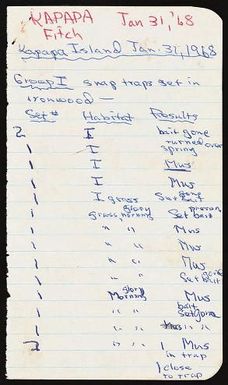 KAPAPA Jan 31, '68
Fitch
Kapapa Island Jan. 31, 1968
Group I snap traps set in
ironwood —
Set # Habitat Results
2 I bait gone
turned over
1 I spring
1 I Mus
1 I Mus
1 I grass Set bait gone
1 grass, morning glory Set bait
1 " " Mus
1 " " Mus
1 " " Mus
1 " " Set bait gone
1 Morning glory Mus
1 " " Set bait gone
1 " " " "
2 " " 1 Mus
in trap
1 close
to trap